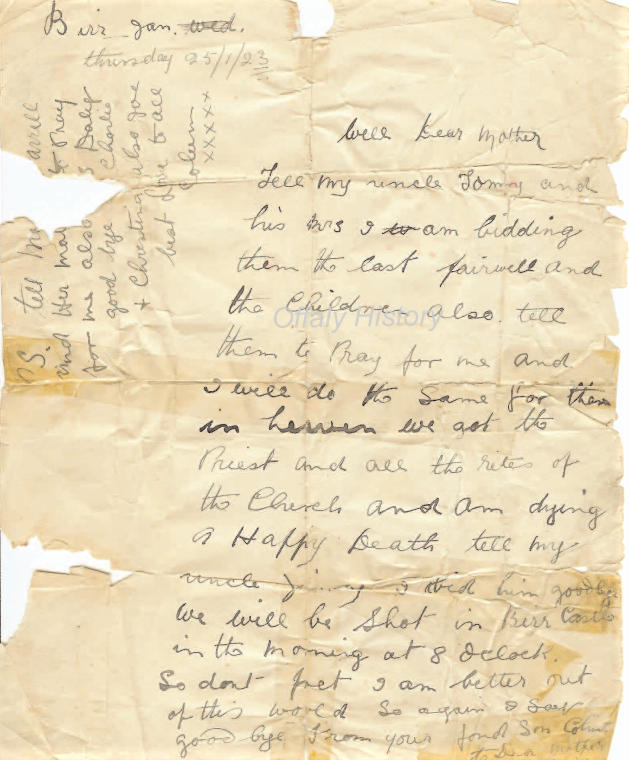 Birr Jan. wed.
thursday 25/1/23
Well Dear Mother
Tell my uncle Tommy and
his Mrs I am bidding
them the last fairwell and
the Children also. tell
them to Pray for me and
I will do the Same for them
in heaven we got the
Priest and all the rites of
the Church and am dying
a Happy Death. tell my
uncle Jimmy I bid him goodbye
We will be Shot in Birr Castle
in the Morning at 8 Oclock.
So dont fret I am better out
of this world So again I Say
good bye From your fond Son Colum
to Dear Mother
P.S. tell
and Her to Pray
for me also Daly
good bye Charlie
+ Christina also Joe
best love to all
Colum
xxxxx
Offaly History